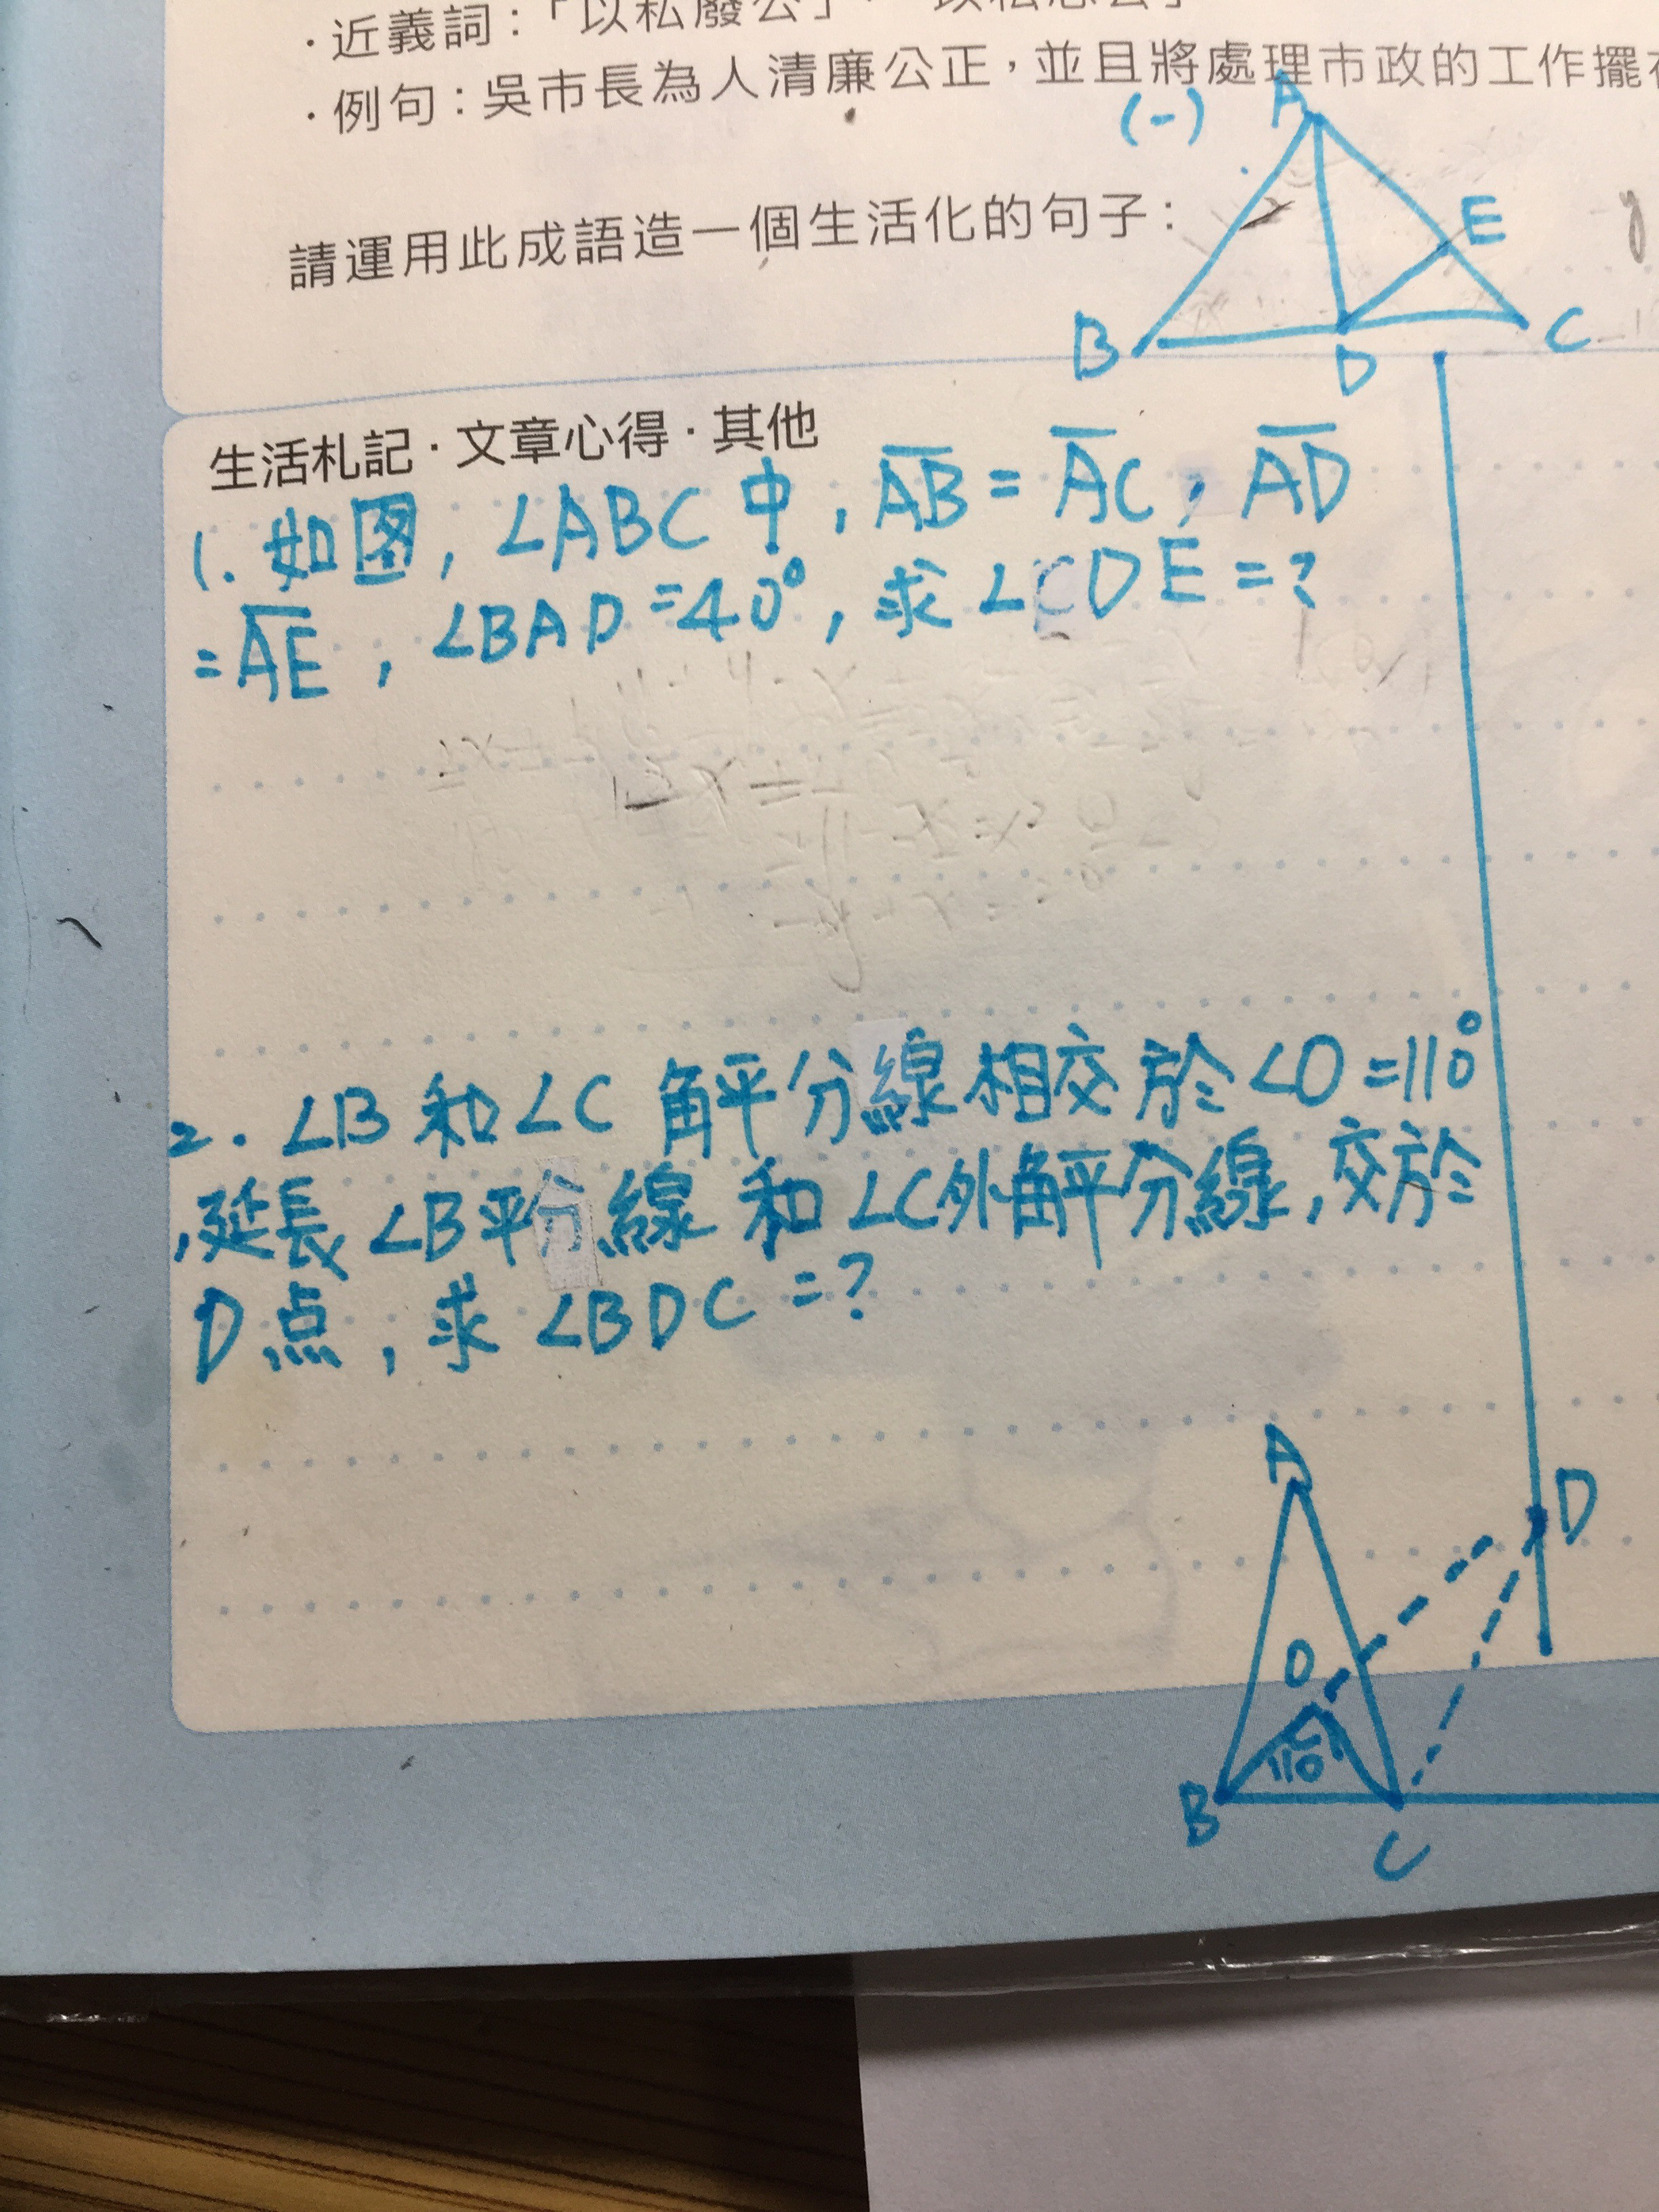 ·近義詞:「以私廢公」
·例句:吳市長為人清廉公正,並且將處理市政的工作擺
(一)
A
請運用此成語造一個生活化的句子:
E
B
D
C
生活札記·文章心得·其他
1. 如图, ∠ABC 中, AB = AC, AD
= AE, ∠BAD = 40°, 求 ∠CDE = ?
2. ∠B 和 ∠C 角平分線相交於 ∠O = 110°
,延長 ∠B平分線 和 ∠C外角平分線,交於
D点, 求 ∠BDC = ?
A
D
O
110
B
C